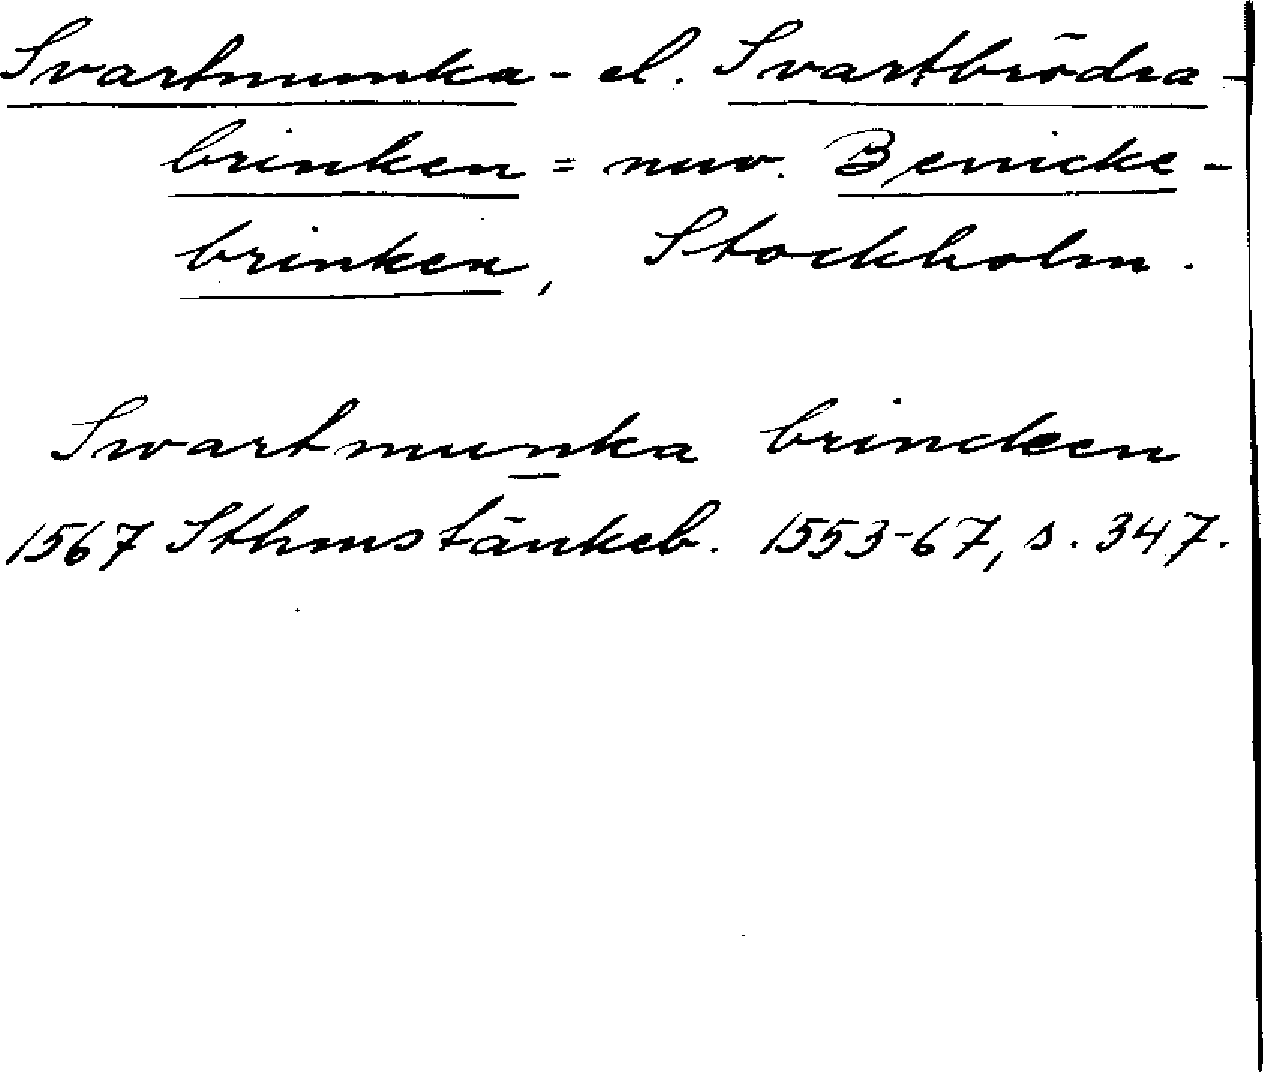 Svartmunka- el. Svartbrödra-
brinken = nuv. Benicke-
brinken, Stockholm.
Swartmunka brincken
1567 Sthmstänkeb. 1553-67, s. 347.